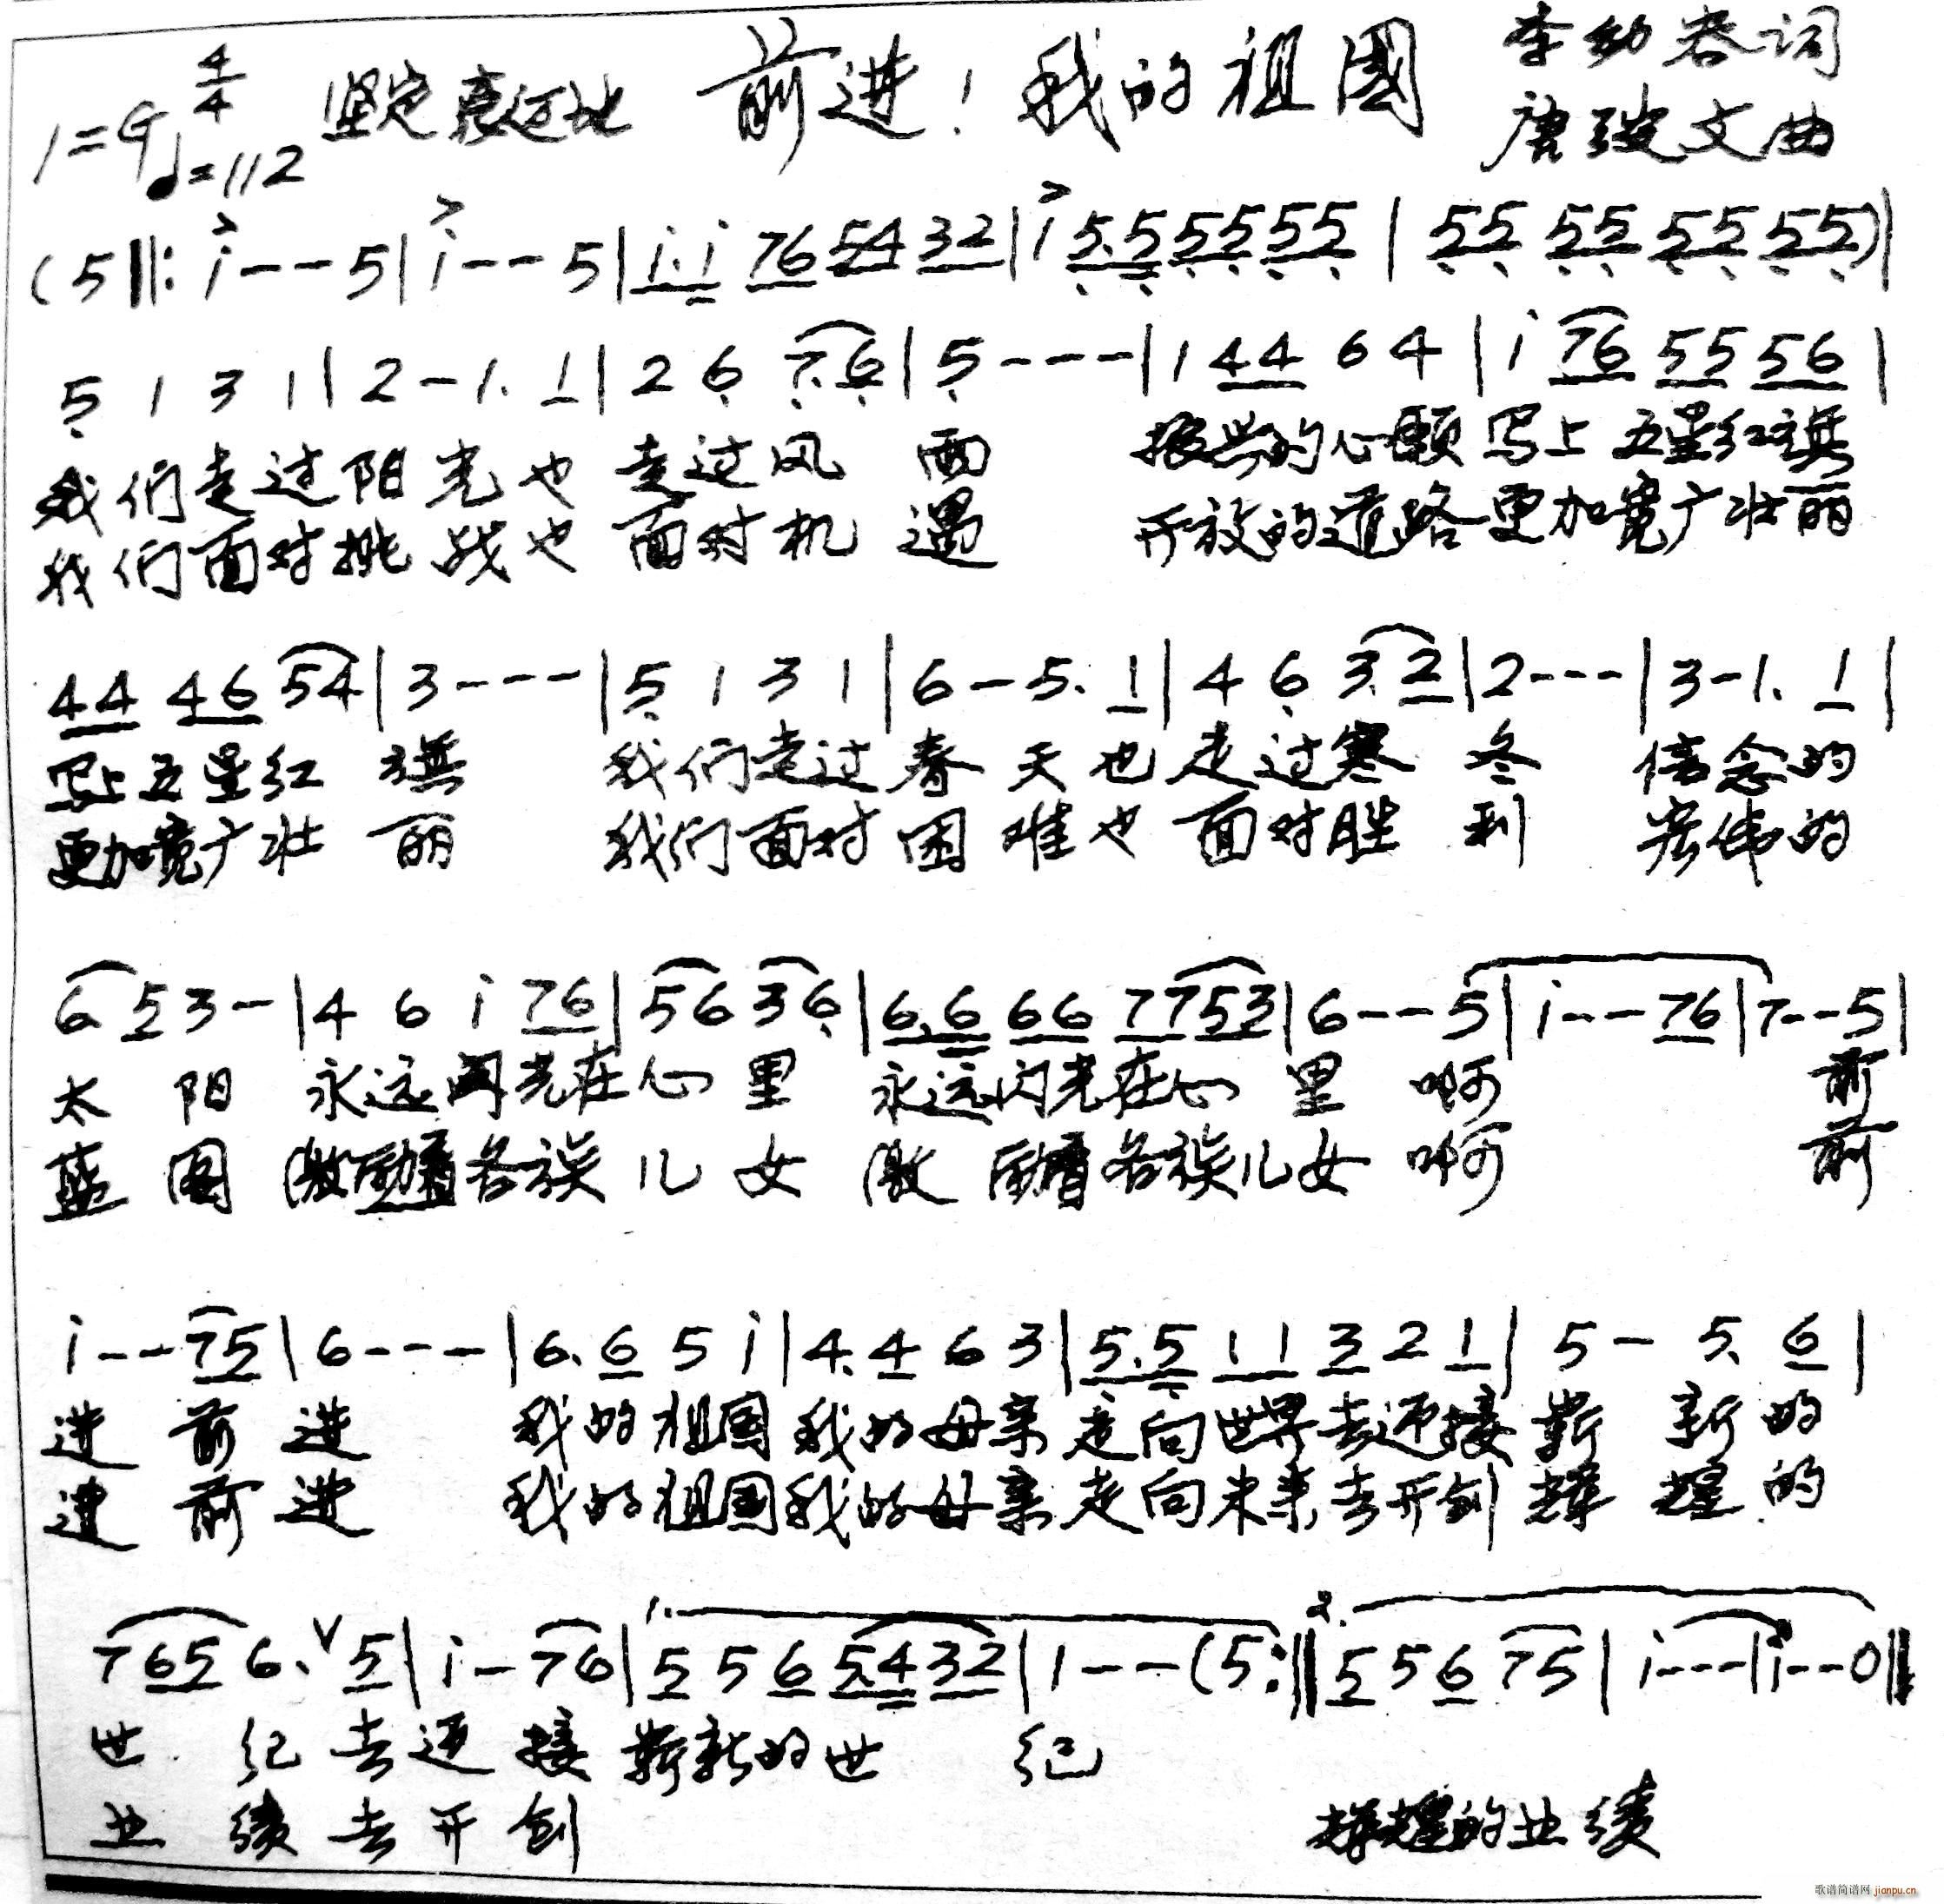 1=G 4/4 ♩=112 坚定豪迈地 前进！我的祖國 李幼容词
唐璇文曲
(5‖: i - - 5 | i - - 5 | i. i 76 54 32 | i 5.5 55 55 | 55 55 55 55) |
5 1 3 1 | 2 - 1. 1 | 2 6 7. 6 | 5 - - - | 1 44 6 4 | i 76 55 56 |
我们走过阳光也走过风雨 振兴的心愿写上五星红旗
我们面对挑战也面对机遇 开放的道路更加宽广壮丽
44 46 54 | 3 - - - | 5 1 3 1 | 6 - 5. 1 | 4 6 3. 2 | 2 - - - | 3 - 1. 1 |
写上五星红旗 我们走过春天也走过寒冬 信念的
更加宽广壮丽 我们面对困难也面对胜利 宏伟的
6. 5 3 - | 4 6 i 76 | 56 36 | 6.6 66 7753 | 6 - - 5 | i - - 76 | 7 - - 5 |
太阳 永远闪光在心里 永远闪光在心里 啊 前
蓝图 激励着各族儿女 激励着各族儿女 啊 前
i - - 75 | 6 - - - | 6. 6 5 i | 4. 4 6 3 | 5.5 11 3 2 1 | 5 - 5. 6 |
进 前进 我的祖国我的母亲走向世界去迎接崭新的
进 前进 我的祖国我的母亲走向未来去开创辉煌的
7 65 6. ∨ 5 | i - 76 | 1. 5 5 6 5.4 32 | 1 - - (5 :‖ 2. 5 5 6 75 | i - - - | i - - 0 ‖
世纪去迎接崭新的世纪
业绩去开创 辉煌的业绩
歌谱简谱网 jianpu.cn